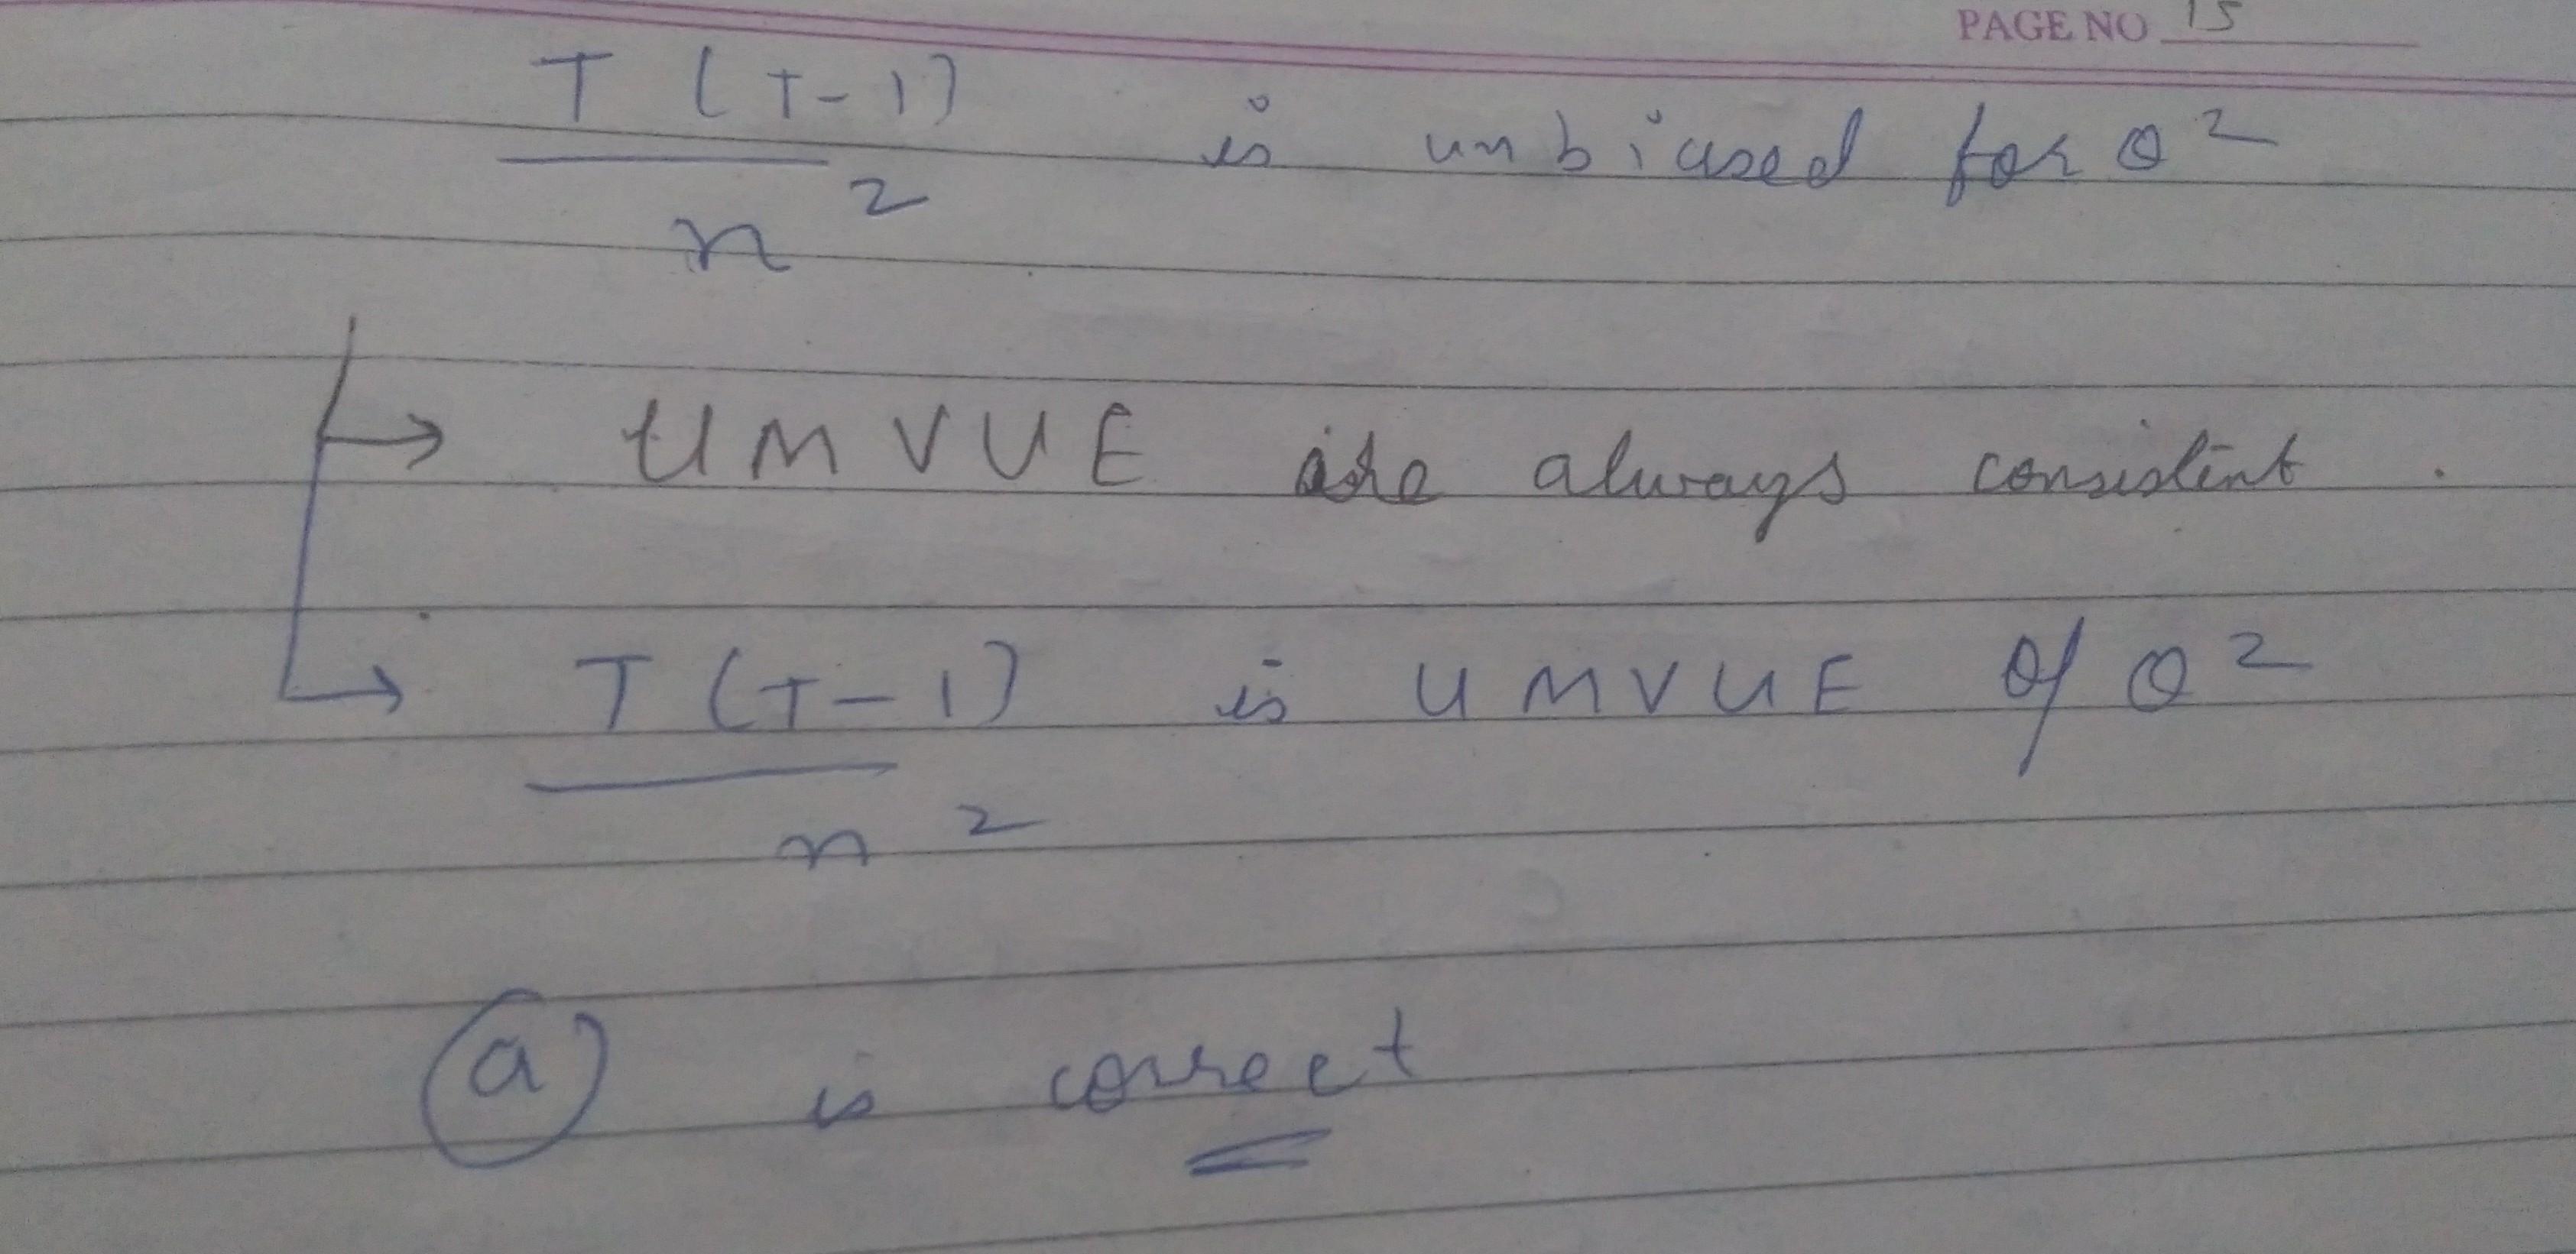 PAGE NO 15
T (T-1) / n² is unbiased for θ²
→ UMVUE are always consistent.
→ T (T-1) / n² is UMVUE of θ²
(a) is correct